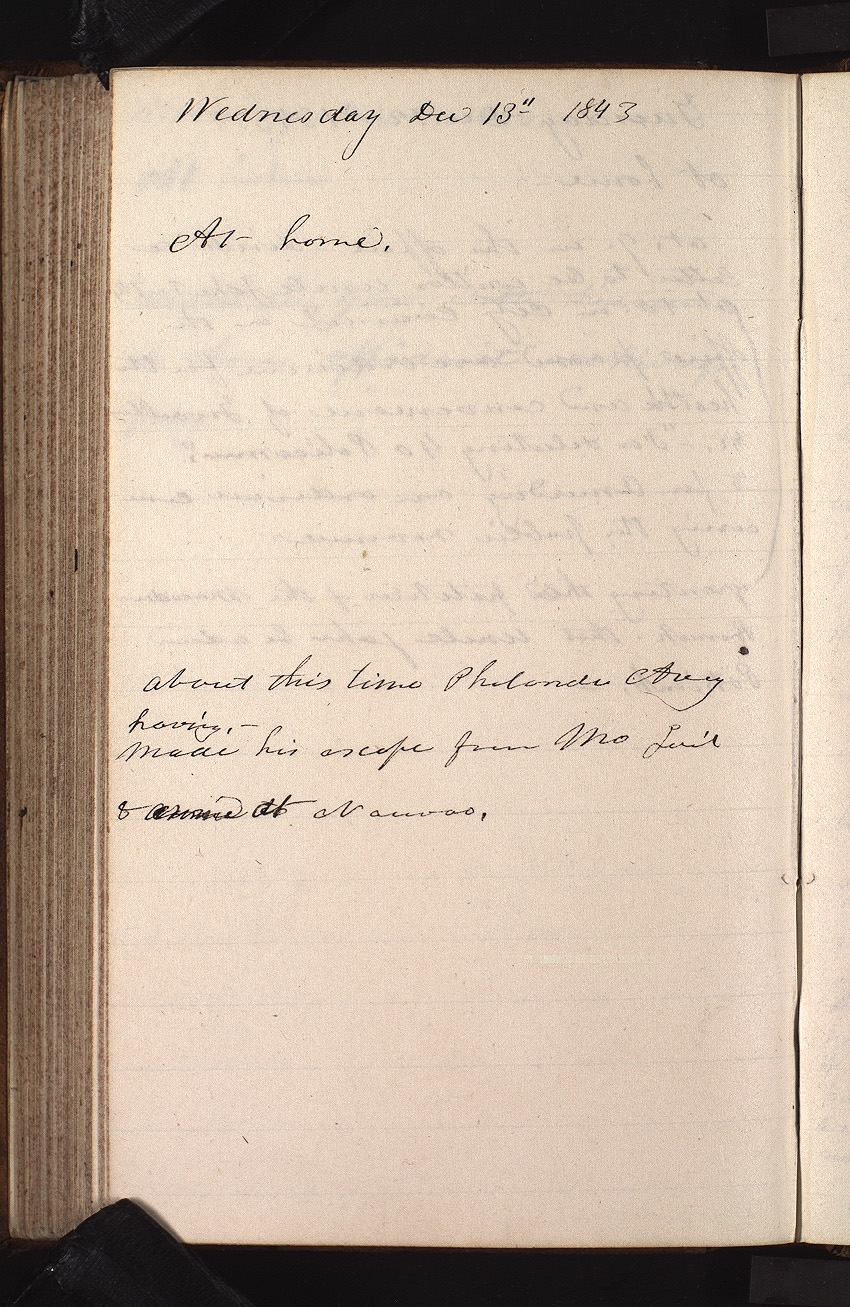 Wednesday Dec 13" 1843
At home.
about this time Philander Avery
having,-
made his escape from Mo Jail
& arrived at Nauvoo.